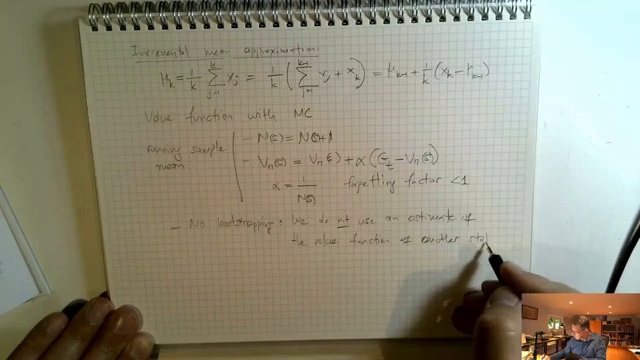 Incremental mean approximation:
μ_k = 1/k ∑_{j=1}^{k} x_j = 1/k ( ∑_{j=1}^{k-1} x_j + x_k ) = μ_{k-1} + 1/k ( x_k - μ_{k-1} )
Value function with MC
running sample mean
- N(s) = N(s)+1
- V_π(s) = V_π(s) + α ( G_t - V_π(s) )
α = 1/N(s) forgetting factor < 1
- No bootstrapping: We do not use an estimate of
the value function of another sta